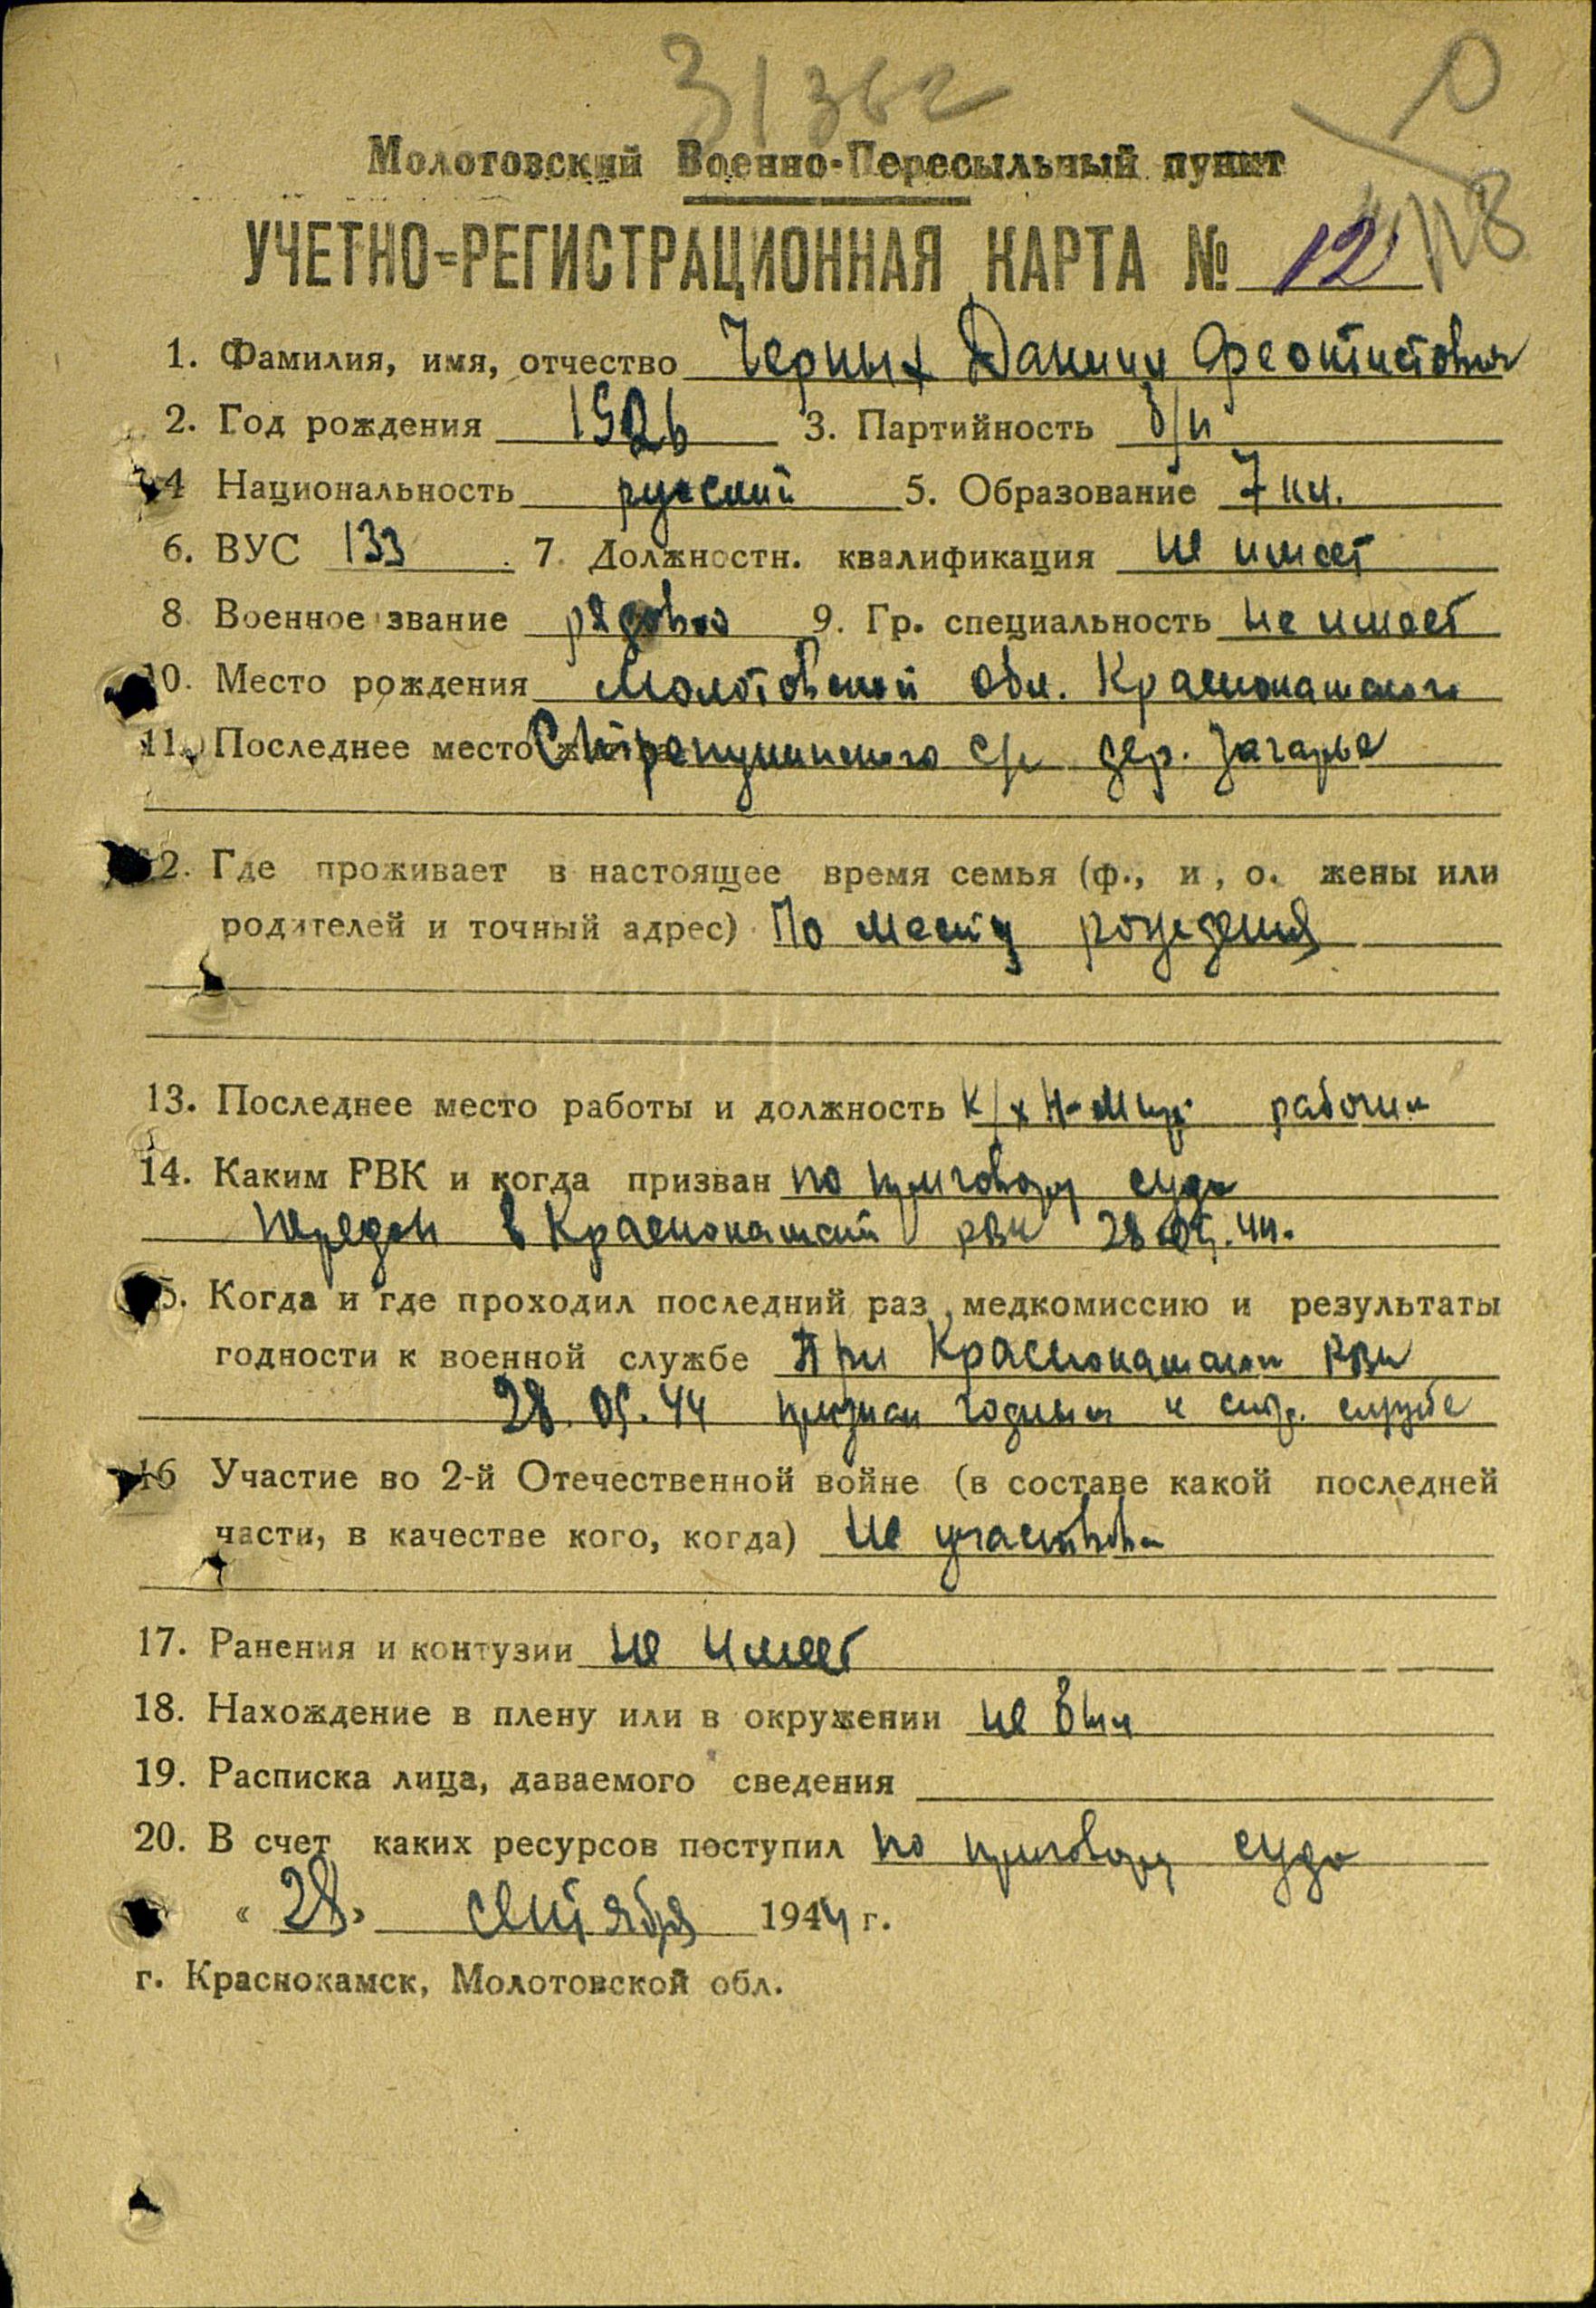 31362
0
118
Молотовский Военно-Пересыльный пункт
УЧЕТНО=РЕГИСТРАЦИОННАЯ КАРТА № 12
1. Фамилия, имя, отчество Черных Данил Феоктистович
2. Год рождения 1926 3. Партийность б/п
4 Национальность русский 5. Образование 7 кл.
6. ВУС 133 7. Должностн. квалификация не имеет
8. Военное звание рядовой 9. Гр. специальность не имеет
10. Место рождения Молотовской обл. Краснокамского
11. Последнее место с/с дер. Загарье
12. Где проживает в настоящее время семья (ф., и, о. жены или
родителей и точный адрес) По месту рождения
13. Последнее место работы и должность к/х рабочий
14. Каким РВК и когда призван по приговору суда
передан в Краснокамский рвк 28.09.44.
15. Когда и где проходил последний раз медкомиссию и результаты
годности к военной службе При Краснокамском РВК
28.09.44 признан годным к стр. службе
16 Участие во 2-й Отечественной войне (в составе какой последней
части, в качестве кого, когда) не участвовал
17. Ранения и контузии не имеет
18. Нахождение в плену или в окружении не был
19. Расписка лица, даваемого сведения
20. В счет каких ресурсов поступил по приговору суда
« 28 » сентября 1944 г.
г. Краснокамск, Молотовской обл.